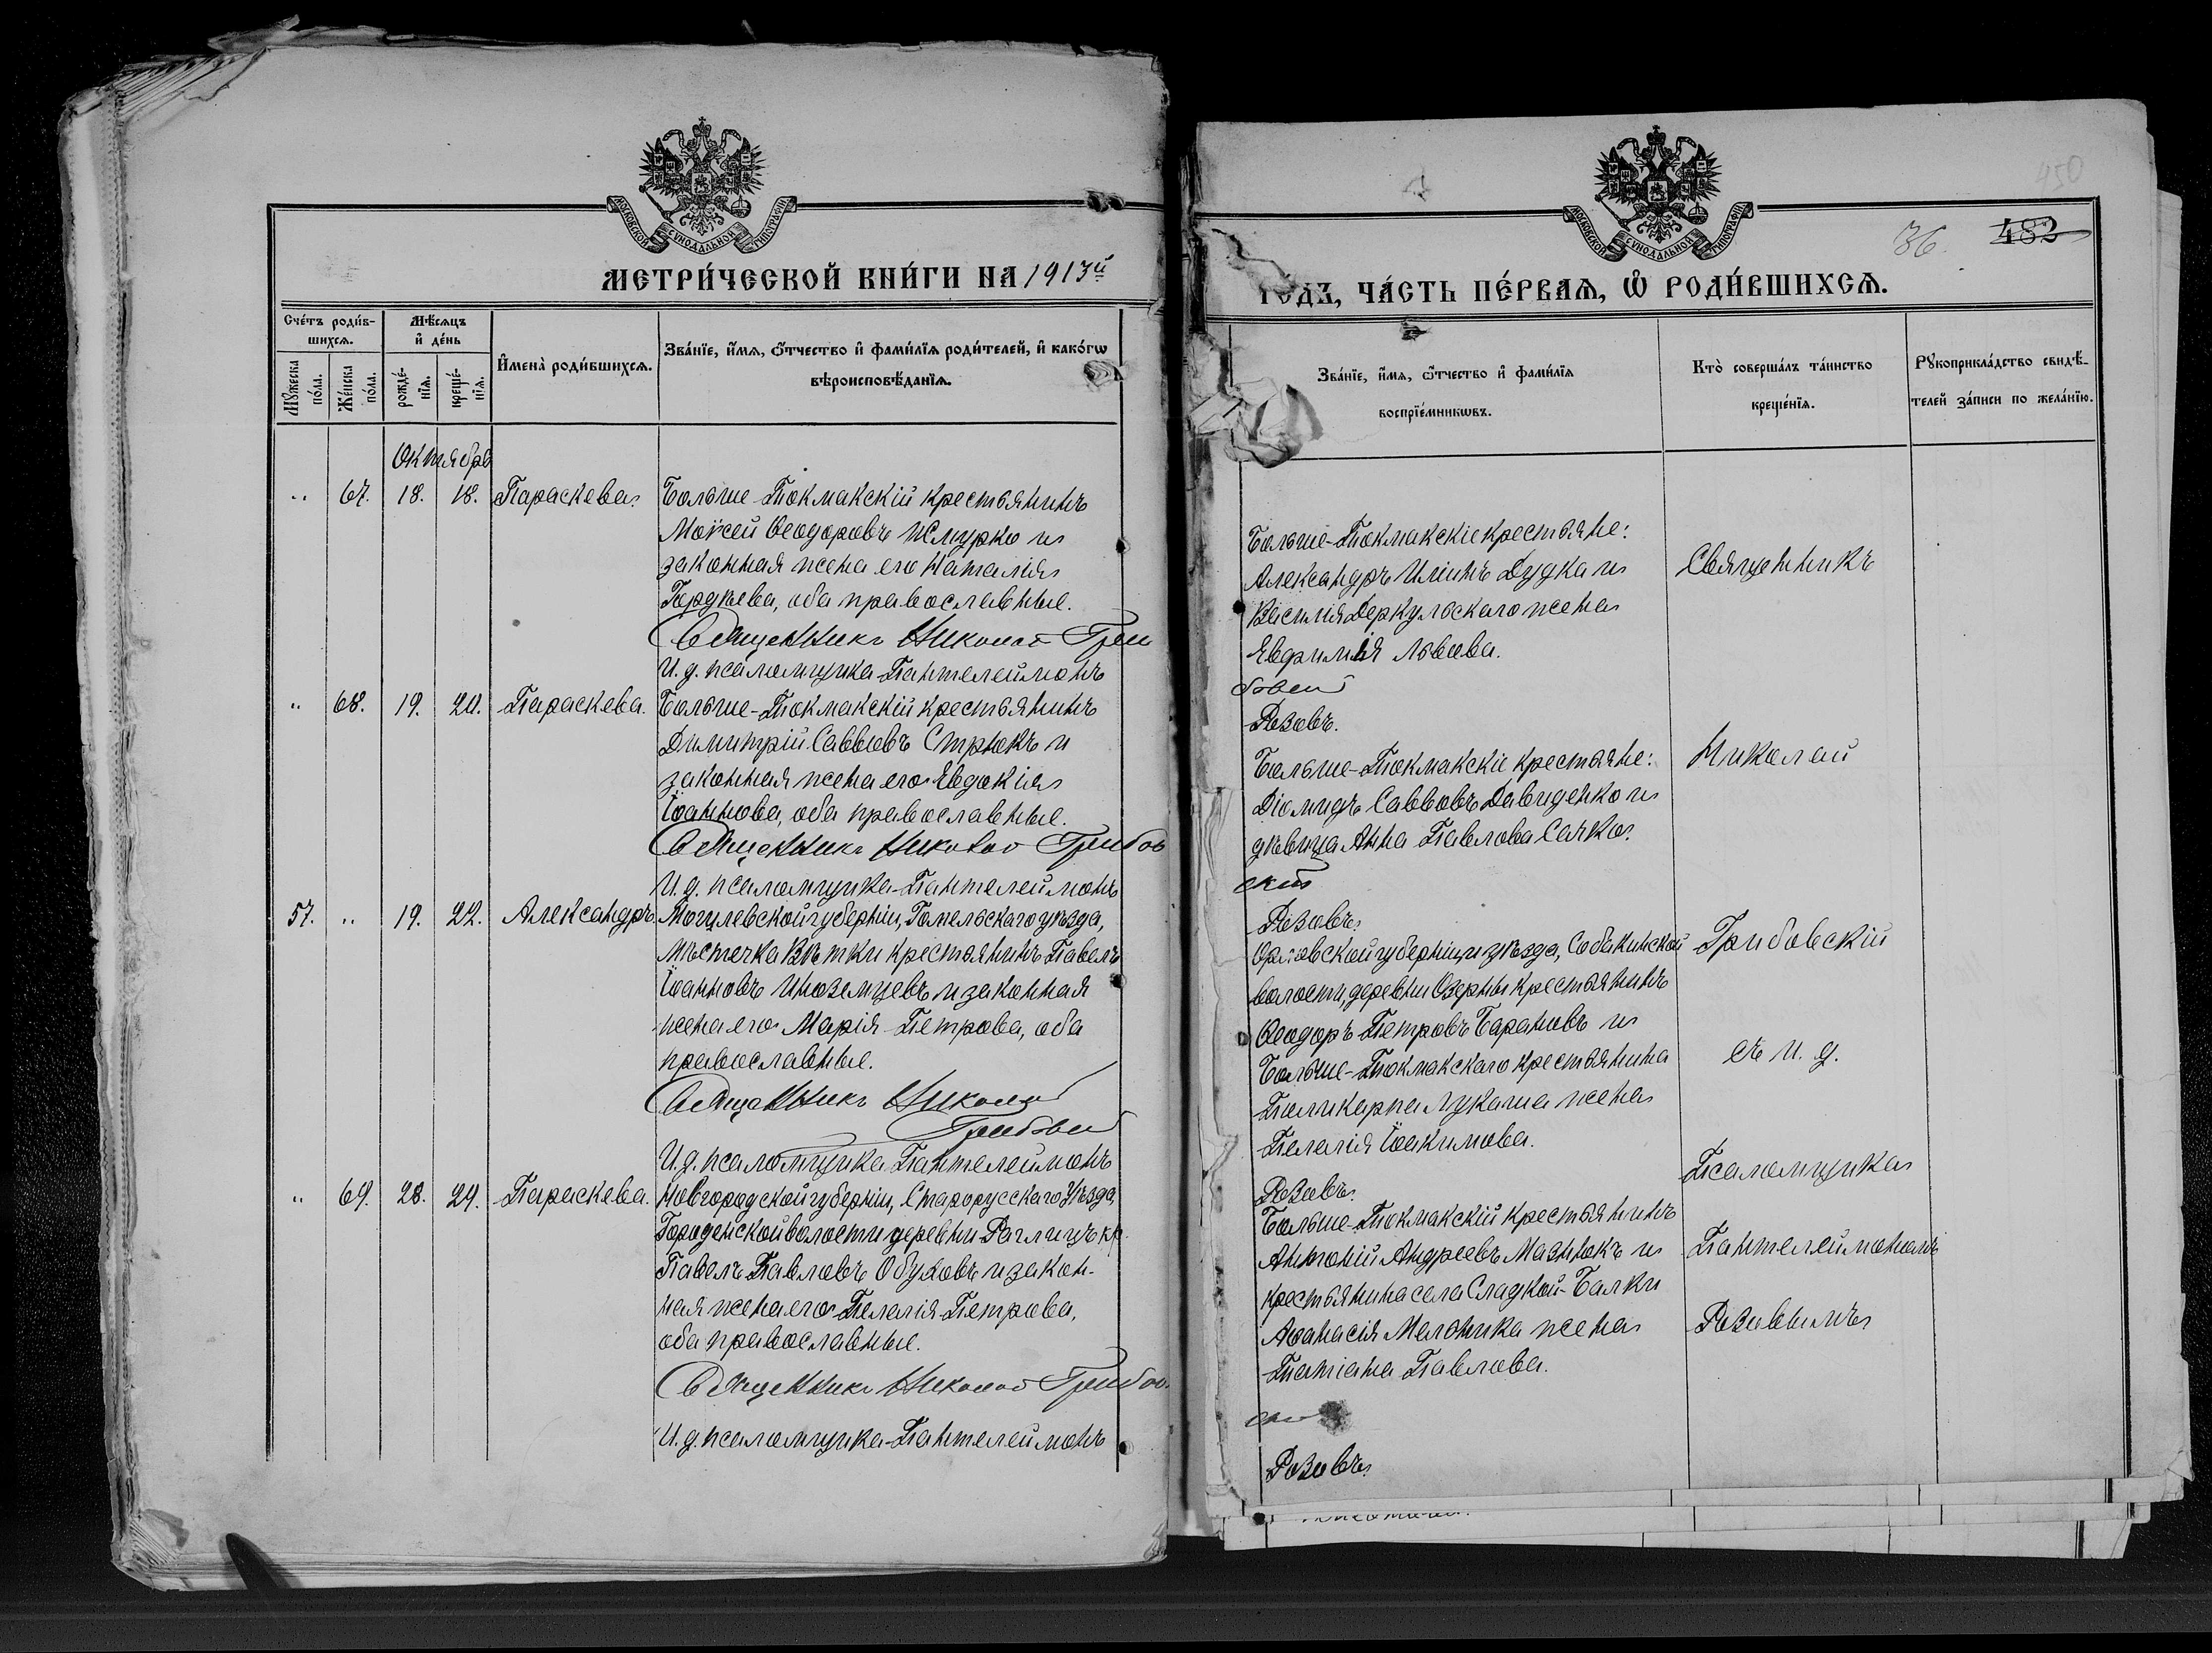 МОСКОВСКОЙ СУНОДАЛЬНОЙ ТИПОГРАФІИ
МЕТРИ́ЧЕСКОЙ КНИ́ГИ НА 1913й
Сче́тъ роди́в-
шихсѧ.
Мѣ́сѧцъ
и҆ де́нь
Мꙋ́жеска по́ла.
Же́нска по́ла.
рожде́-
нїѧ.
креще́-
нїѧ.
И҆мена̀ роди́вшихсѧ.
Зва́нїе, и҆́мѧ, ѻ҆́тчество и҆ фами́лїѧ роди́телей, и҆ како́гѡ
вѣроисповѣ́данїѧ.
Октябрь
" 67. 18. 18. Параскева.
Больше-Токмакскій крестьянинъ
Моѵсей Ѳеодоровъ Шмурко и
законная жена его Наталія
Гордѣева, оба православные.
Священникъ Николай Гри
И. д. псаломщика Пантелеймонъ
" 68. 19. 20. Параскева.
Больше-Токмакскій крестьянинъ
Димитрій Саввовъ Стрюкъ и
законная жена его Евдокія
Іоаннова, оба православные.
Священникъ Николай Грибов
И. д. псаломщика Пантелеймонъ
57. " 19. 22. Александръ.
Могилевской губерніи, Гомельскаго уѣзда,
мѣстечка Вѣтки крестьянинъ Павелъ
Іоанновъ Иноземцевъ и законная
жена его Марія Петрова, оба
православные.
Священникъ Николай
Грибовс
И. д. псаломщика Пантелеймонъ
" 69. 28. 29. Параскева.
Новгородской губерніи, Старорусскаго уѣзда,
Городенской волости деревни кр.
Павелъ Павловъ Обуховъ и закон-
ная жена его Пелагія Петрова,
оба православные.
Священникъ Николай Грибов
И. д. псаломщика Пантелеймонъ
МОСКОВСКОЙ СУНОДАЛЬНОЙ ТИПОГРАФІИ
450
86. 482
ГОДЪ, ЧА́СТЬ ПЕ́РВАѦ, Ѡ҆ РОДИ́ВШИХСѦ.
Зва́нїе, и҆́мѧ, ѻ҆́тчество и҆ фами́лїѧ
воспрїе́мникѡвъ.
Кто̀ соверша́лъ та́инство
креще́нїѧ.
Рꙋкоприкла́дство свидѣ́-
телей за́писи по жела́нїю.
Больше-Токмакскіе крестьяне:
Александръ Иліинъ Дудка и
Василія Деркульскаго жена
Евфимія Львова.
бовскій
Розовъ.
Больше-Токмакскіе крестьяне:
Діомидъ Саввовъ Давиденко и
дѣвица Анна Павлова Сачко.
скій
Розовъ.
Орловской губерніи и уѣзда, Собакинской
волости, деревни Озерны крестьянинъ
Ѳеодоръ Петровъ Барановъ и
Больше-Токмакскаго крестьянина
Поликарпа Лукаша жена
Пелагія Іоакимова.
Розовъ.
Больше-Токмакскій крестьянинъ
Антоній Андреевъ Мазнюкъ и
крестьянина села Сладкой-Балки
Аѳанасія Мельника жена
Татіана Павлова.
скій
Розовъ.
Священникъ
Николай
Грибовскій
съ и. д.
Псаломщика
Пантелеймономъ
Розовымъ